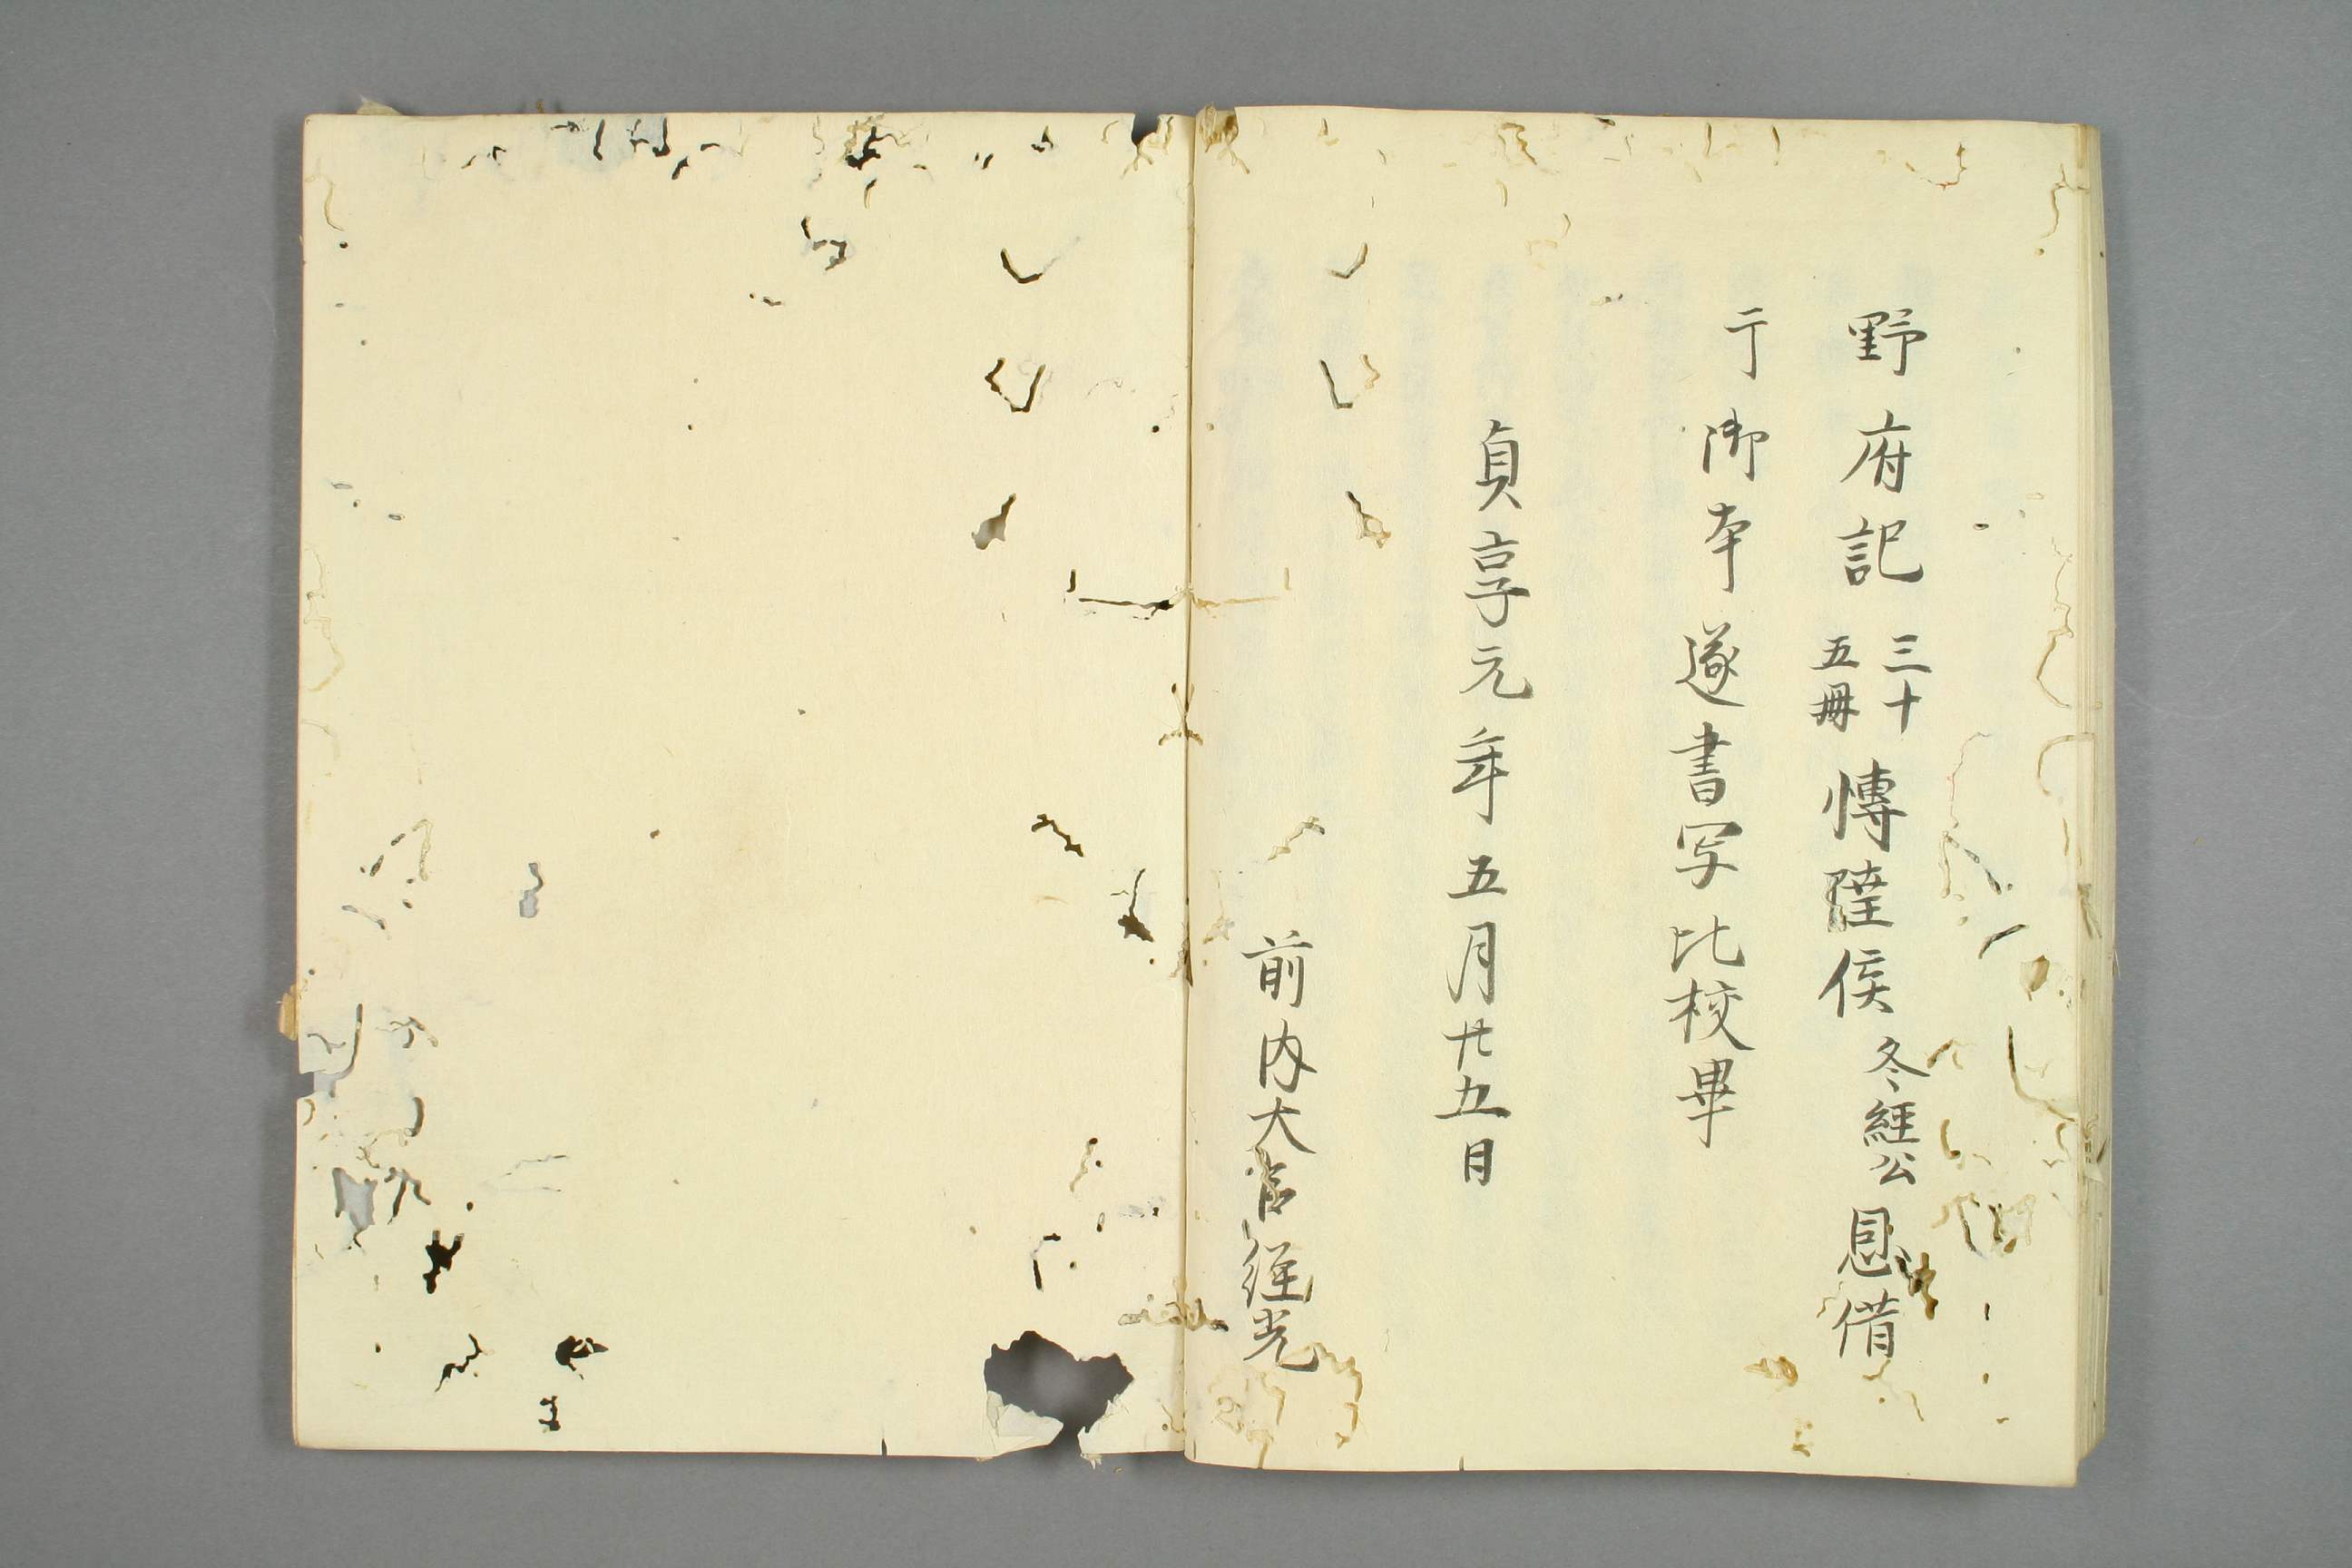 野府記三十五冊博陸侯冬經公恩借
于御本遂書写比校畢
貞享元年五月廿五日
前内大臣経光